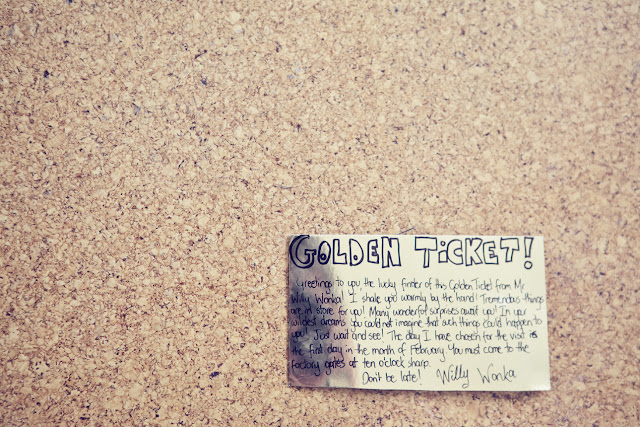 GOLDEN TICKET!
Greetings to you, the lucky finder of this Golden Ticket from Mr
Willy Wonka! I shake you warmly by the hand! Tremendous things
are in store for you! Many wonderful surprises await you! In your
wildest dreams you could not imagine that such things could happen to
you! Just wait and see! The day I have chosen for the visit is
the first day in the month of February. You must come to the
factory gates at ten o'clock sharp.
Don't be late! Willy Wonka